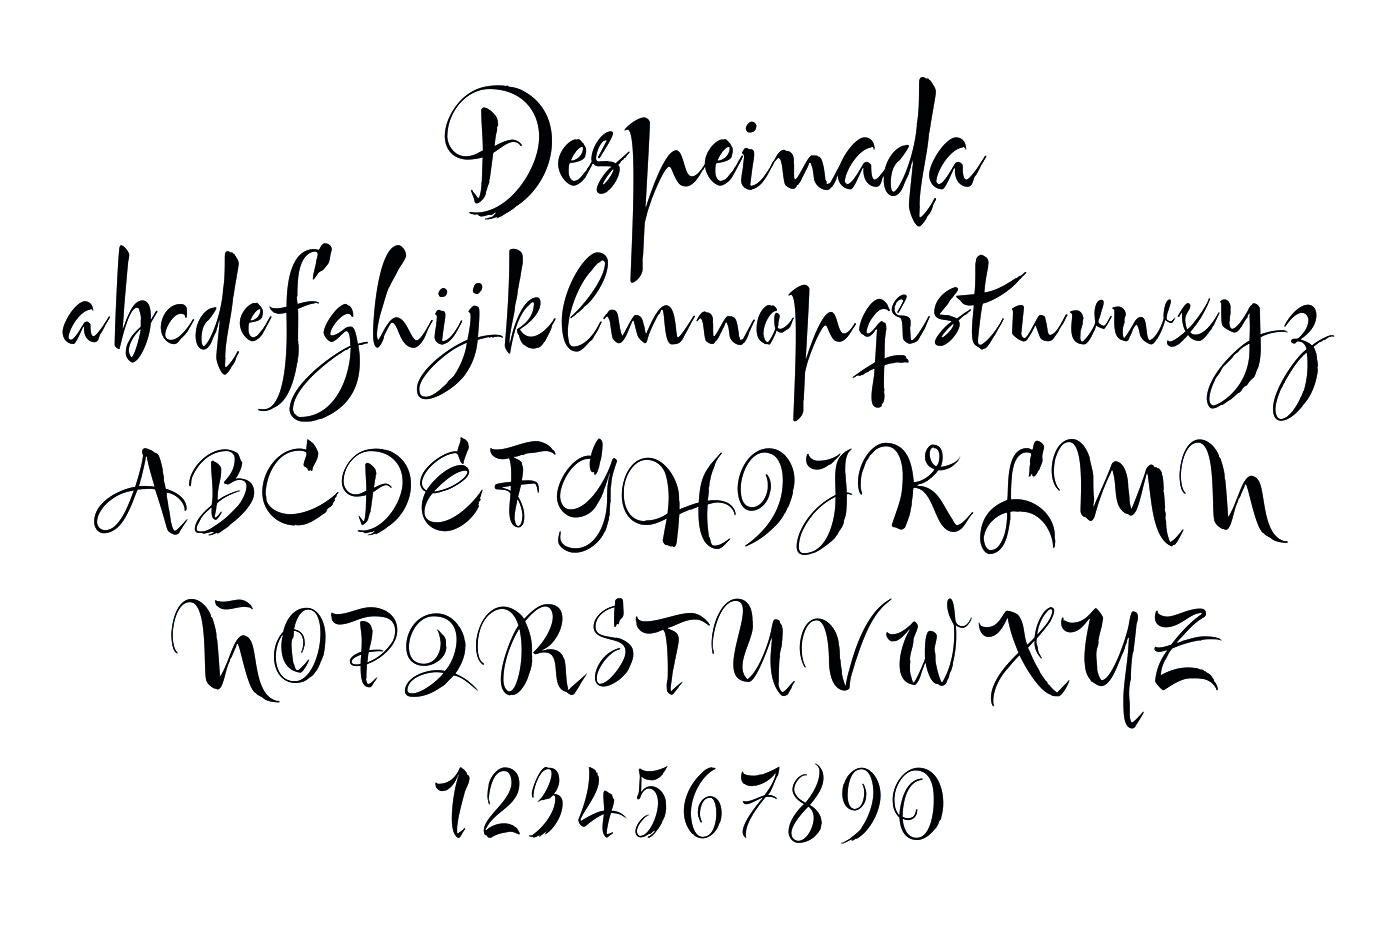 Despeinada
abcdefghijklmnopqrstuvwxyz
ABCDEFGHIJKLMN
ÑOPQRSTUVWXYZ
1234567890